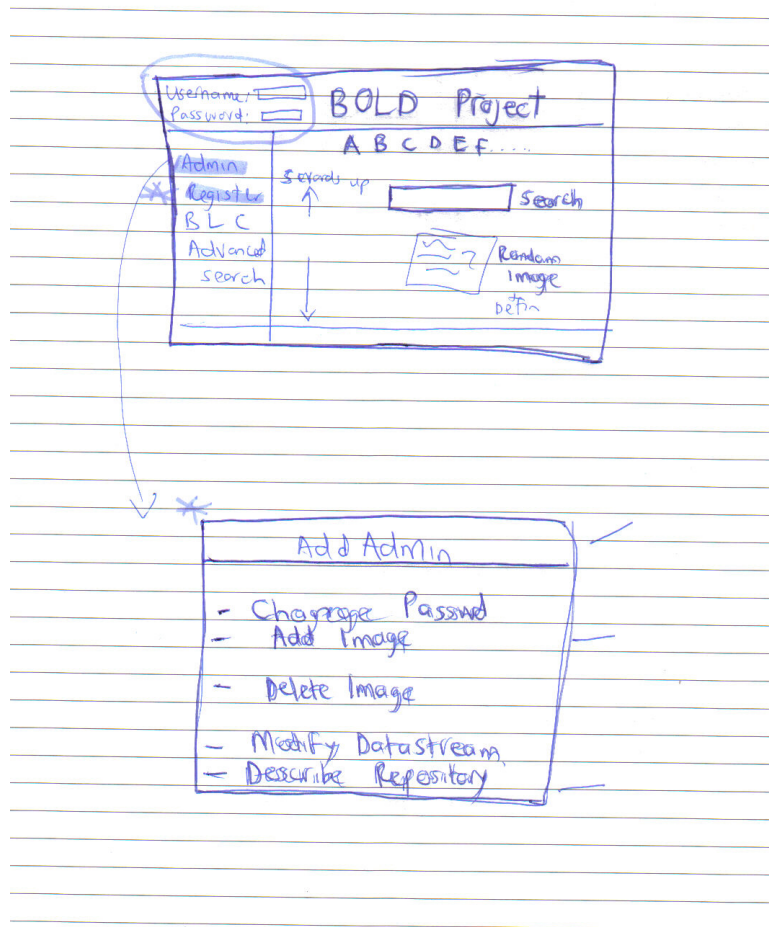 Username:
Password:
BOLD Project
A B C D E F.....
Admin
Register
B L C
Advanced
search
up
Search
Random
Image
+
Defin
Add Admin
- Change Passwd
- Add Image
- Delete Image
- Modify Datastream
- Describe Repository